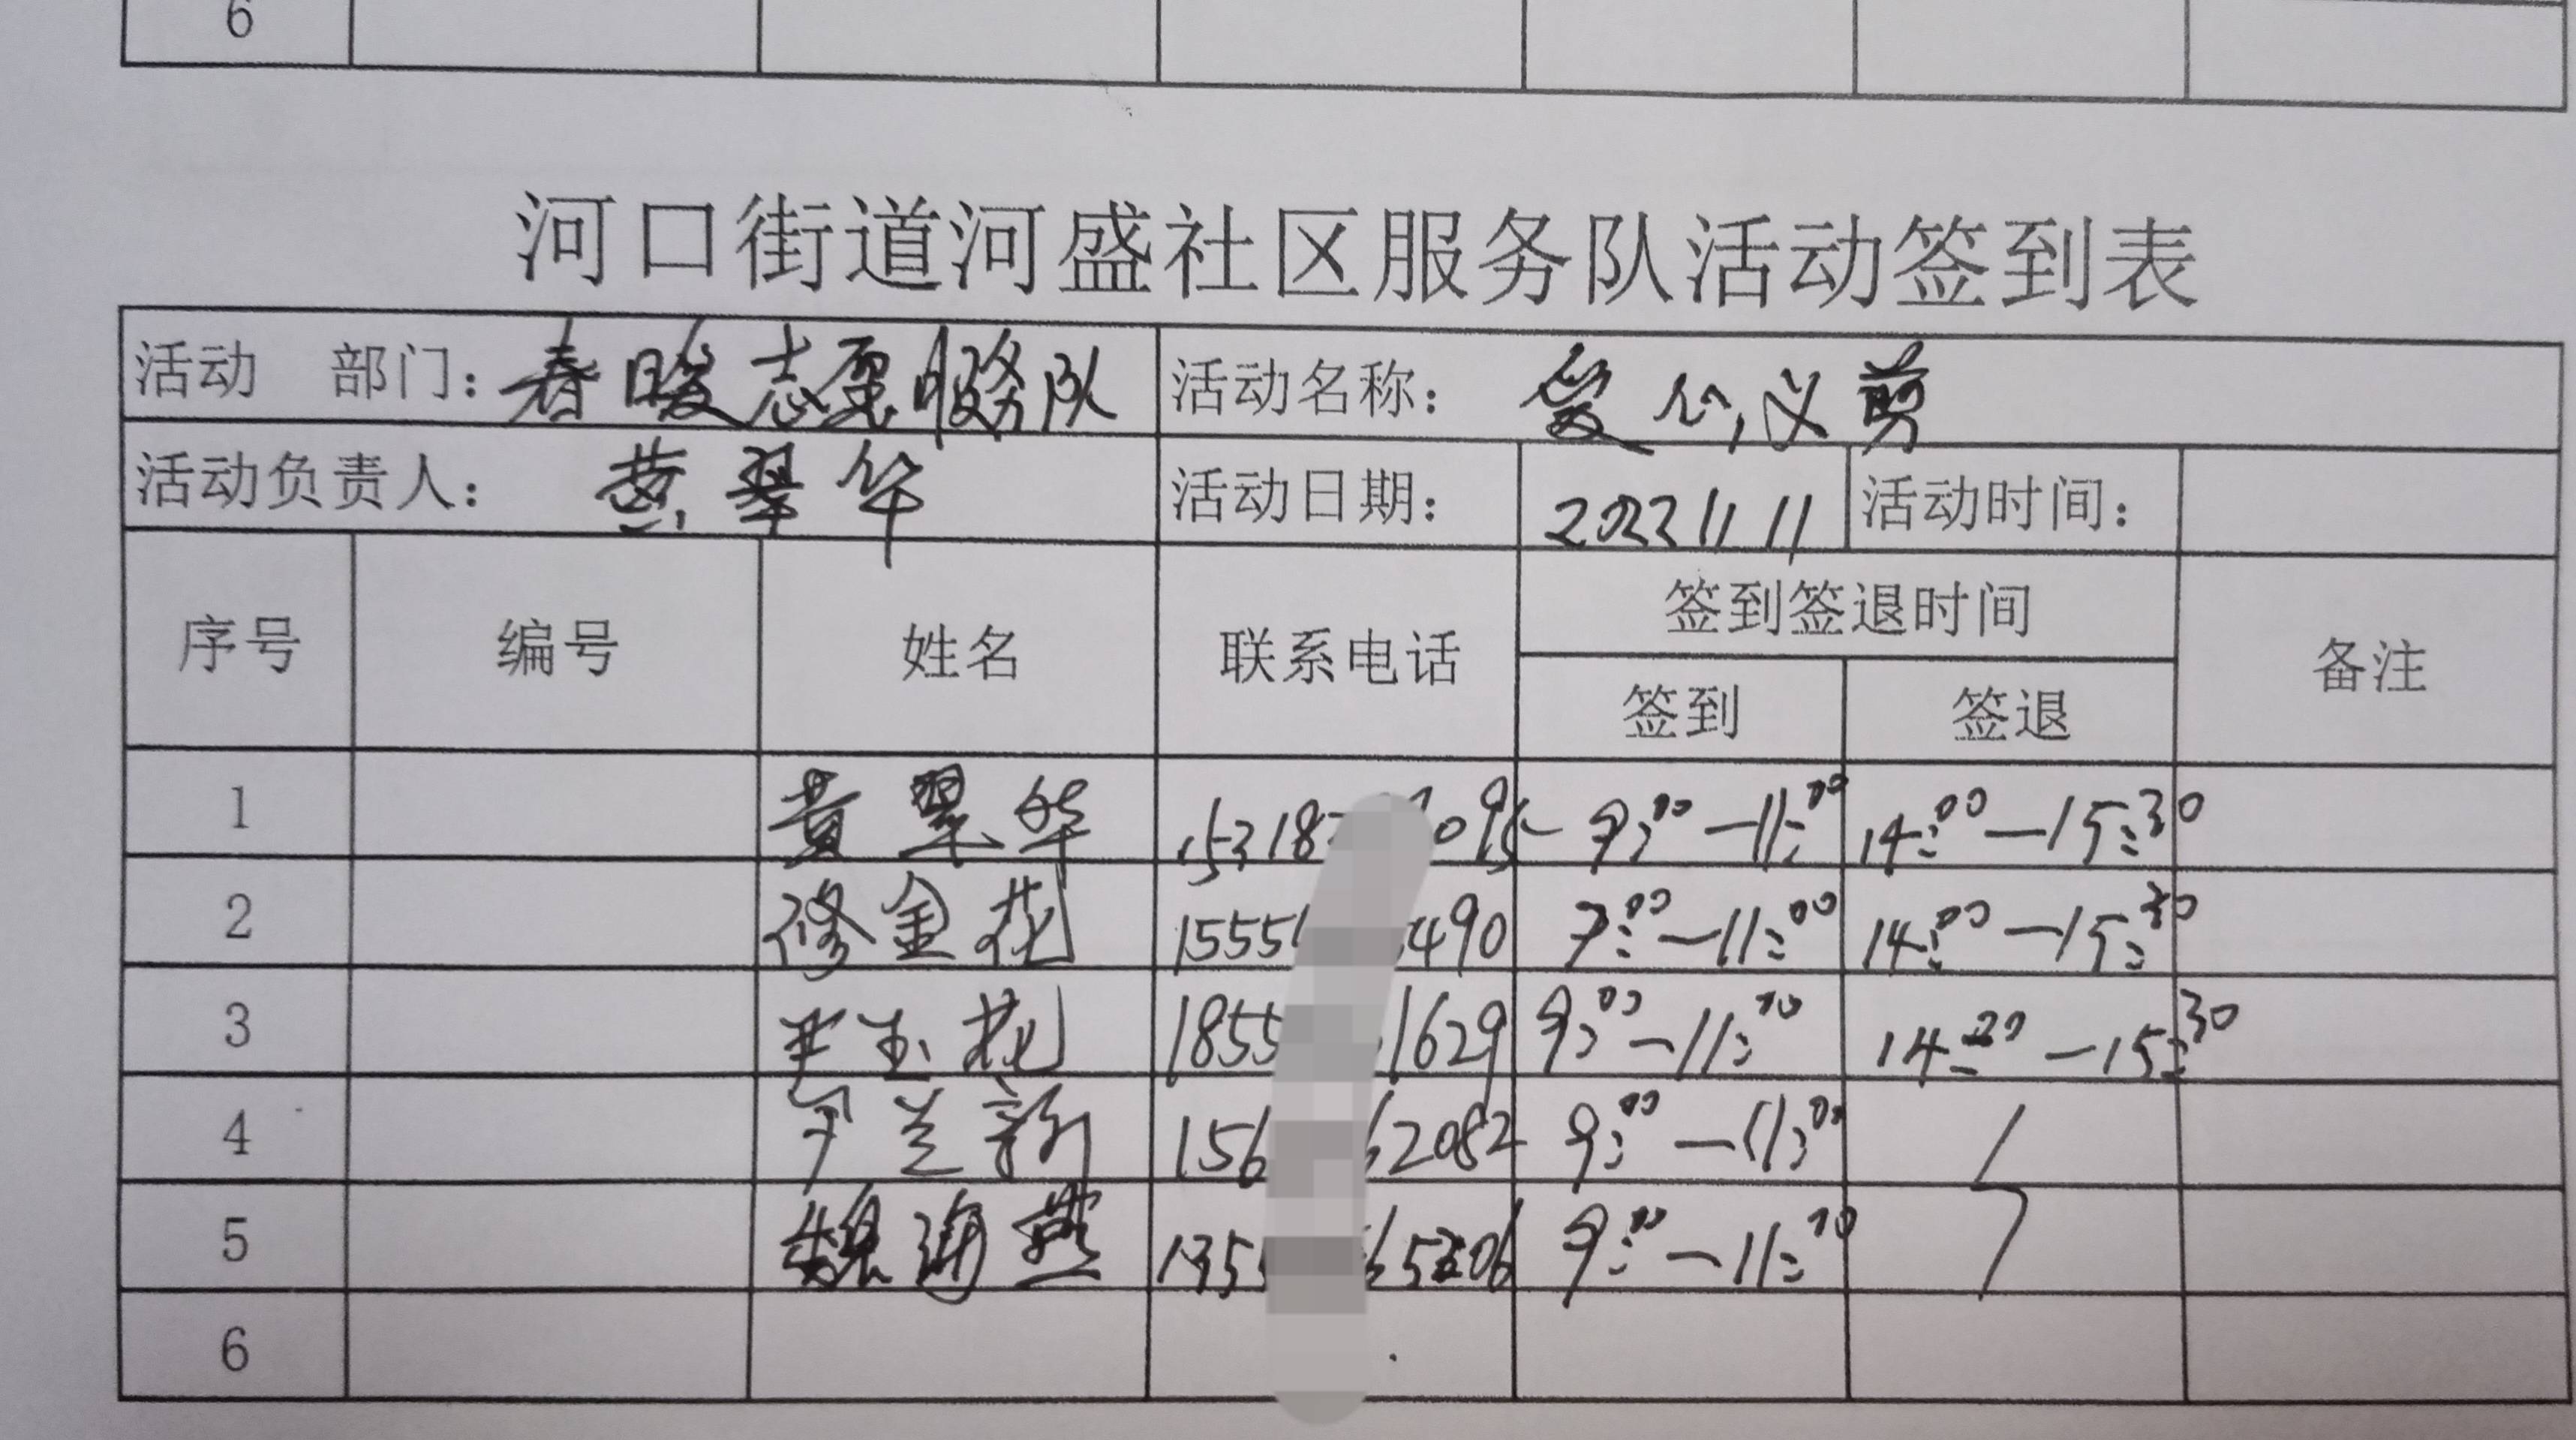 6
河口街道河盛社区服务队活动签到表
活动 部门：春暖志愿服务队 活动名称： 爱心义剪
活动负责人： 黄翠华 活动日期： 2022 11 11 活动时间：
序号 编号 姓名 联系电话 签到签退时间 备注
签到 签退
1 黄翠华 15318 095 9:00—11:00 14:00—15:30
2 修金花 1555 490 7:00—11:00 14:00—15:30
3 王玉花 1855 1629 9:00—11:00 14:00—15:30
4 兰新 156 62082 9:00—11:00
5 魏海燕 135 65306 9:00—11:00
6